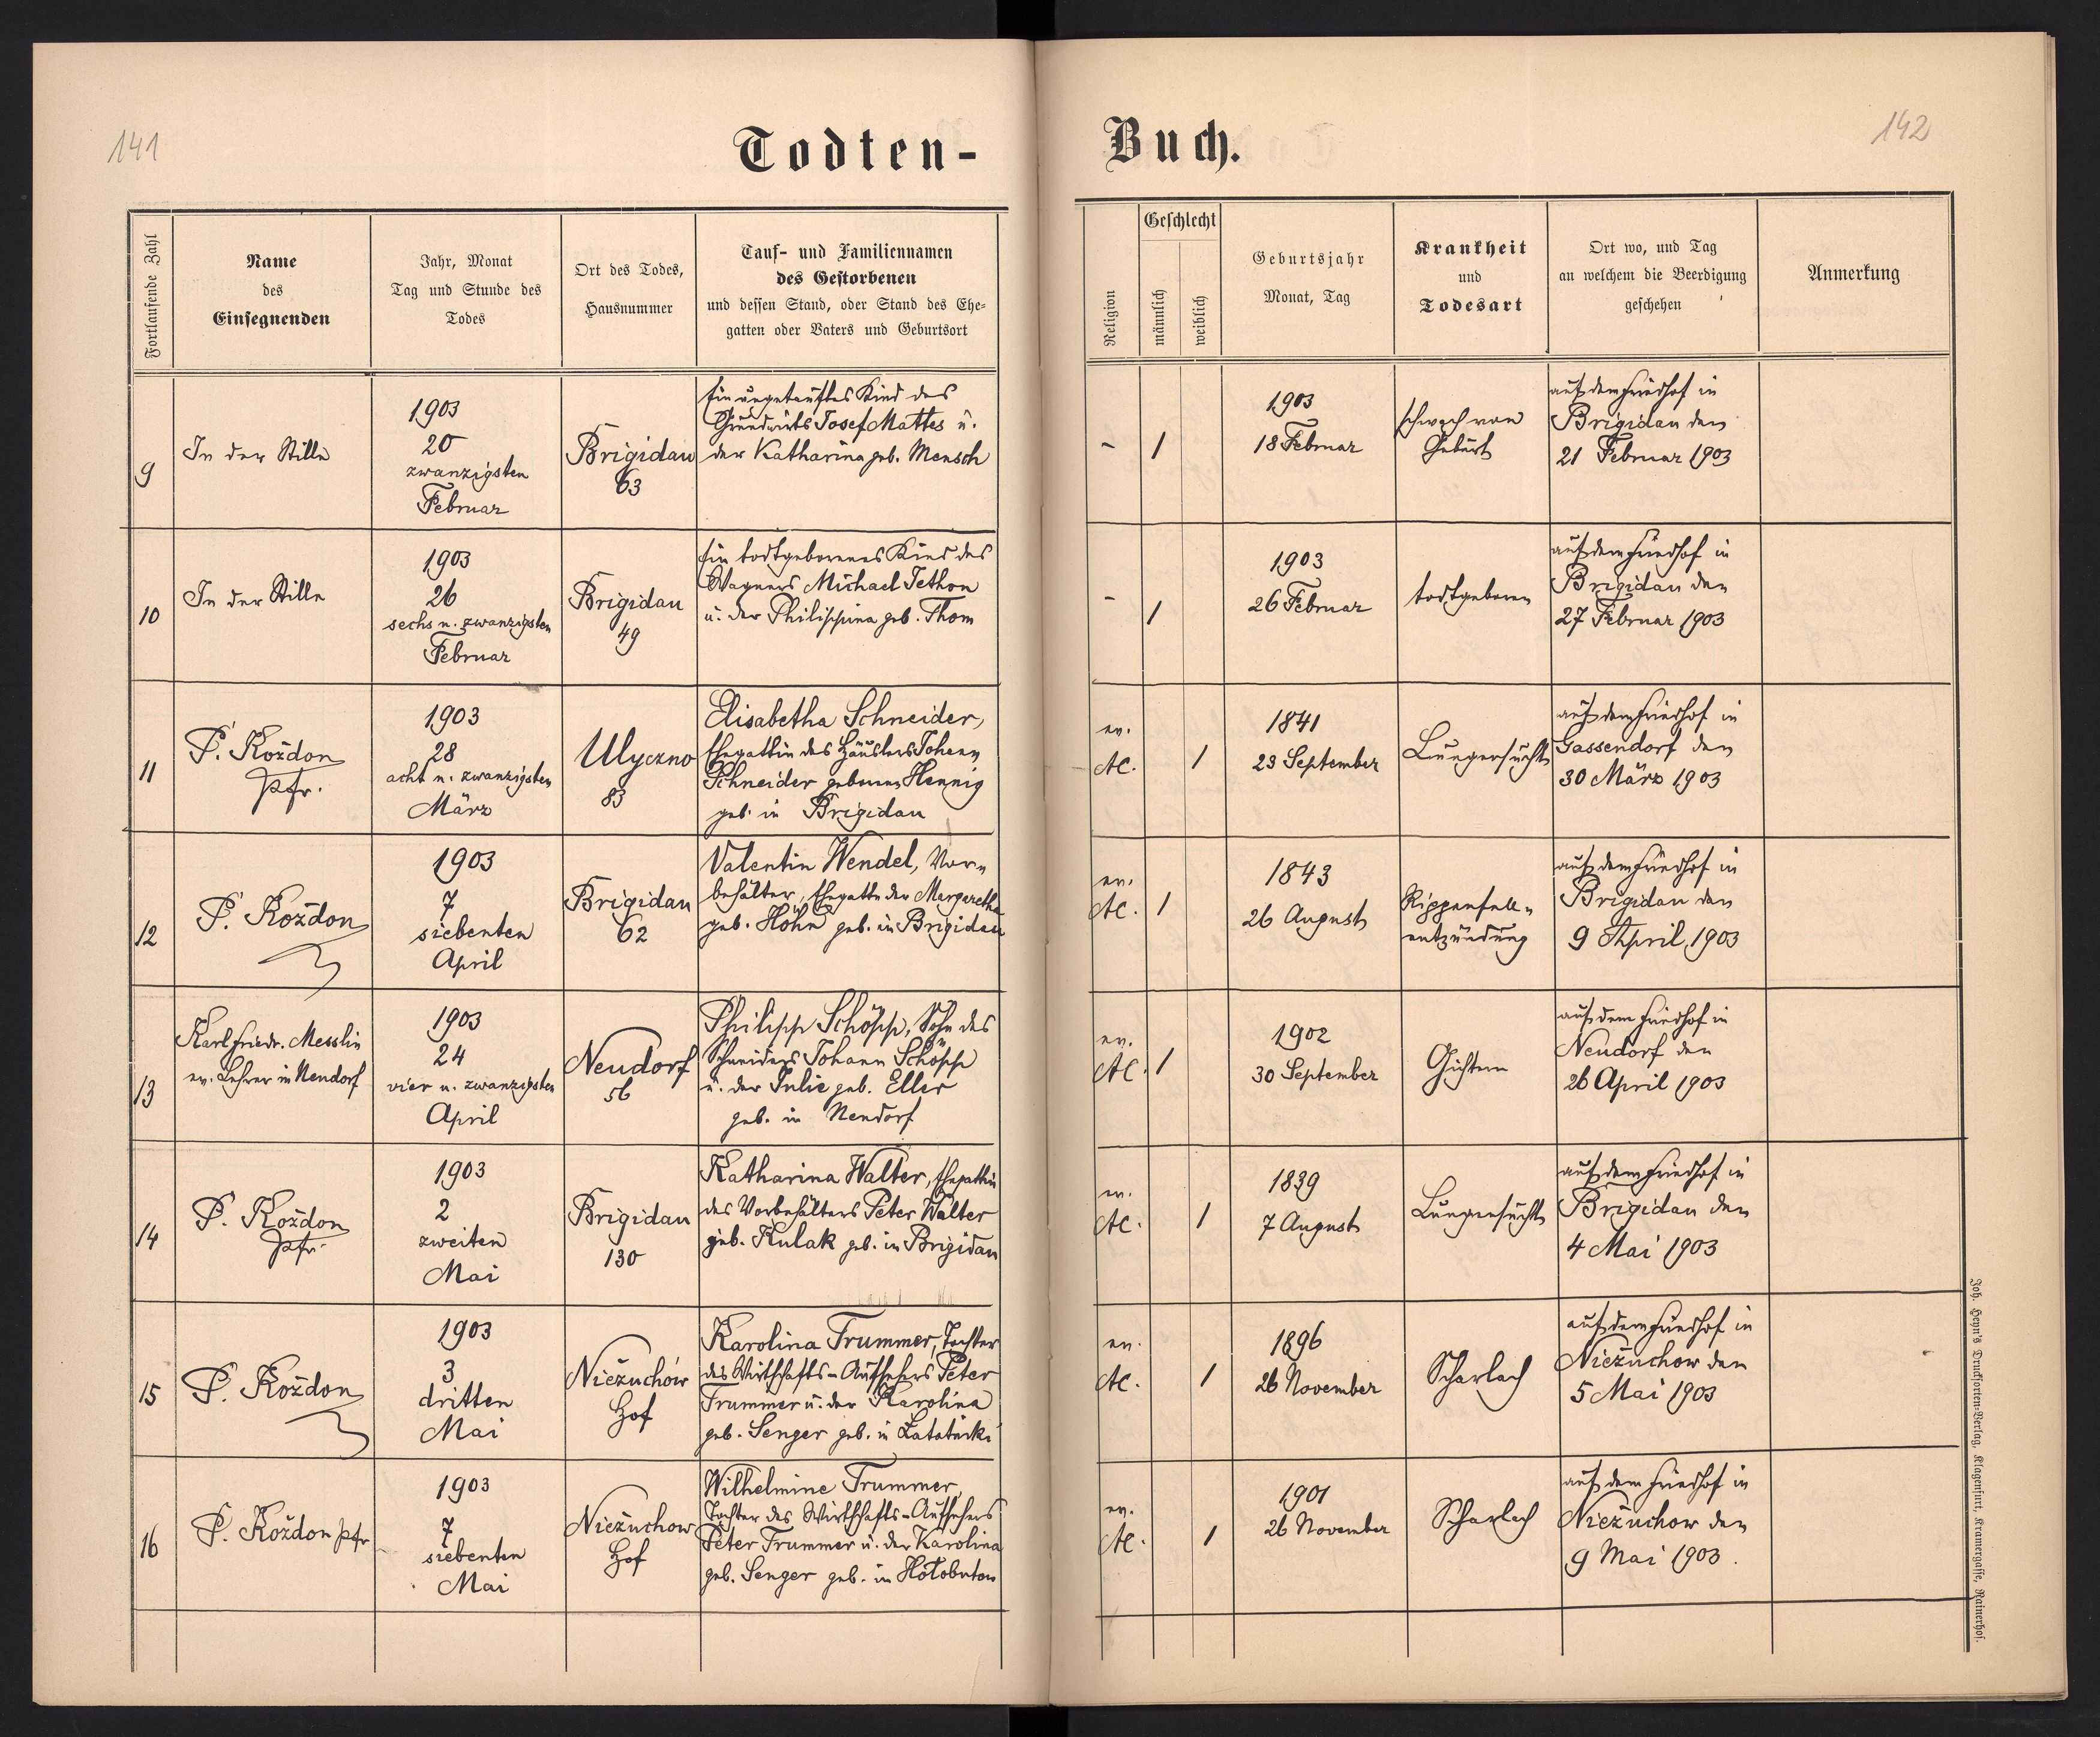 141
Todten-
Buch.
142
Fortlaufende Zahl
Name
des
Einsegnenden
Jahr, Monat
Tag und Stunde des
Todes
Ort des Todes,
Hausnummer
Tauf- und Familiennamen
des Gestorbenen
und dessen Stand, oder Stand des Ehe-
gatten oder Vaters und Geburtsort
Religion
Geschlecht
männlich
weiblich
Geburtsjahr
Monat, Tag
Krankheit
und
Todesart
Ort wo, und Tag
an welchem die Beerdigung
geschehen
Anmerkung
9
In der Stille
1903
20
zwanzigsten
Februar
Brigidau
63
Ein ungetauftes Kind des
Grundwirts Josef Mattes u.
der Katharina geb. Mensch
-
1
1903
18 Februar
schwach von
Geburt
auf dem Friedhof in
Brigidau den
21 Februar 1903
10
In der Stille
1903
26
sechs u. zwanzigsten
Februar
Brigidau
49
Ein todtgeborenes Kind des
Wagners Michael Jethon
u. der Philippina geb. Thom
-
1
1903
26 Februar
todtgeboren
auf dem Friedhof in
Brigidau den
27 Februar 1903
11
P. Kożdon
Pfr.
1903
28
acht u. zwanzigsten
März
Ulyczno
83
Elisabetha Schneider,
Ehegattin des Häuslers Johann
Schneider geborene Hennig
geb. in Brigidau
ev.
AC.
1
1841
23 September
Lungensucht
auf dem Friedhof in
Gassendorf den
30 März 1903
12
P. Kożdon
1903
7
siebenten
April
Brigidau
62
Valentin Wendel, Vor-
behälter, Ehegatte der Margaretha
geb. Höhn geb. in Brigidau
ev.
AC.
1
1843
26 August
Rippenfell-
entzündung
auf dem Friedhof in
Brigidau den
9 April 1903
13
Karl Friedr. Messlin
ev. Lehrer in Neudorf
1903
24
vier u. zwanzigsten
April
Neudorf
56
Philipp Schöpp, Sohn des
Schneiders Johann Schöpp
u. der Julie geb. Eller
geb. in Neudorf
ev.
AC.
1
1902
30 September
Gichtern
auf dem Friedhof in
Neudorf den
26 April 1903
14
P. Kożdon
Pfr.
1903
2
zweiten
Mai
Brigidau
130
Katharina Walter, Ehegattin
des Vorbehälters Peter Walter
geb. Kulak geb. in Brigidau
ev.
AC.
1
1839
7 August
Lungensucht
auf dem Friedhof in
Brigidau den
4 Mai 1903
15
P. Kożdon
1903
3
dritten
Mai
Nieżuchów
Hof
Karolina Trummer, Tochter
des Wirthschafts-Aufsehers Peter
Trummer u. der Karolina
geb. Senger geb. in
ev.
AC.
1
1896
26 November
Scharlach
auf dem Friedhof in
Nieżuchow den
5 Mai 1903
16
P. Kożdon Pfr
1903
7
siebenten
Mai
Nieżuchow
Hof
Wilhelmine Trummer,
Tochter des Wirthschafts-Aufsehers
Peter Trummer u. der Karolina
geb. Senger geb. in
ev.
AC.
1
1901
26 November
Scharlach
auf dem Friedhof in
Nieżuchow den
9 Mai 1903.
Joh. Heyn's Drucksorten-Verlag, Klagenfurt, Kramergasse, Rainerhof.